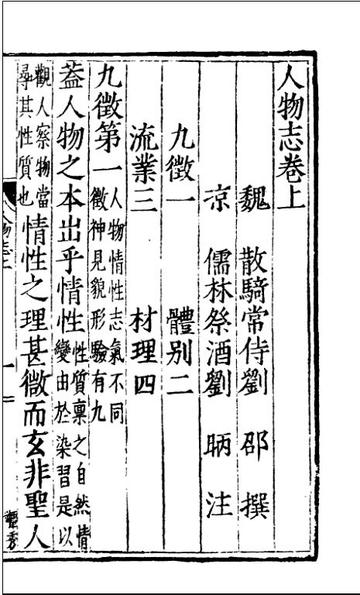 人物志卷上
魏 散騎常侍劉 邵 撰
涼 儒林祭酒劉 昞 注
九徵一 體別二
流業三 材理四
九徵第一 人物情性志氣不同
徵神見貌形驗有九
蓋人物之本出乎情性 性質稟之自然情
變由於染習是以
觀人察物當
尋其性質也 情性之理甚微而玄非聖人
人物志上
一